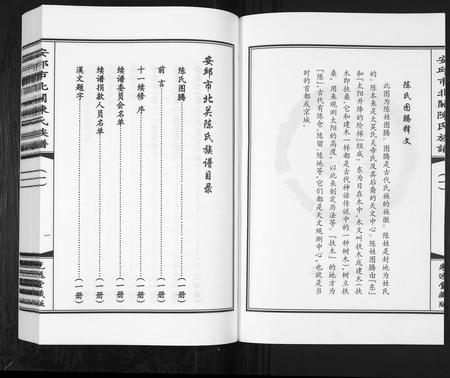 安邱市北關陳氏族譜
(一)
陈氏图腾释文
此图为陈姓图腾。图腾是古代氏族的族徽。陈姓是封地为姓氏
的。陈本来是太昊氏炎帝氏及其后裔的天文中心。陈姓图腾由『东』
和『太阳升降的阶梯』组成：东为日在木中,木又叫扶木或建木(扶
木即扶桑,它和建木一样都是古代神话传说中的一种树木),树立扶
桑,用来观测太阳的高度,以此来制定历法等。『扶木』的地方为
『陈』,古代有陈仓,陈留,陈地等,它们都是天文观测中心,也就是当
时的首都或京城。
安邱市北关陈氏族谱目录
陈氏图腾 (一册)
前言 (一册)
十一续修 序 (一册)
续谱委员会名单 (一册)
续谱捐款人员名单 (一册)
漢文题字 (一册)
安邱市北關陳氏族譜
(一)
一